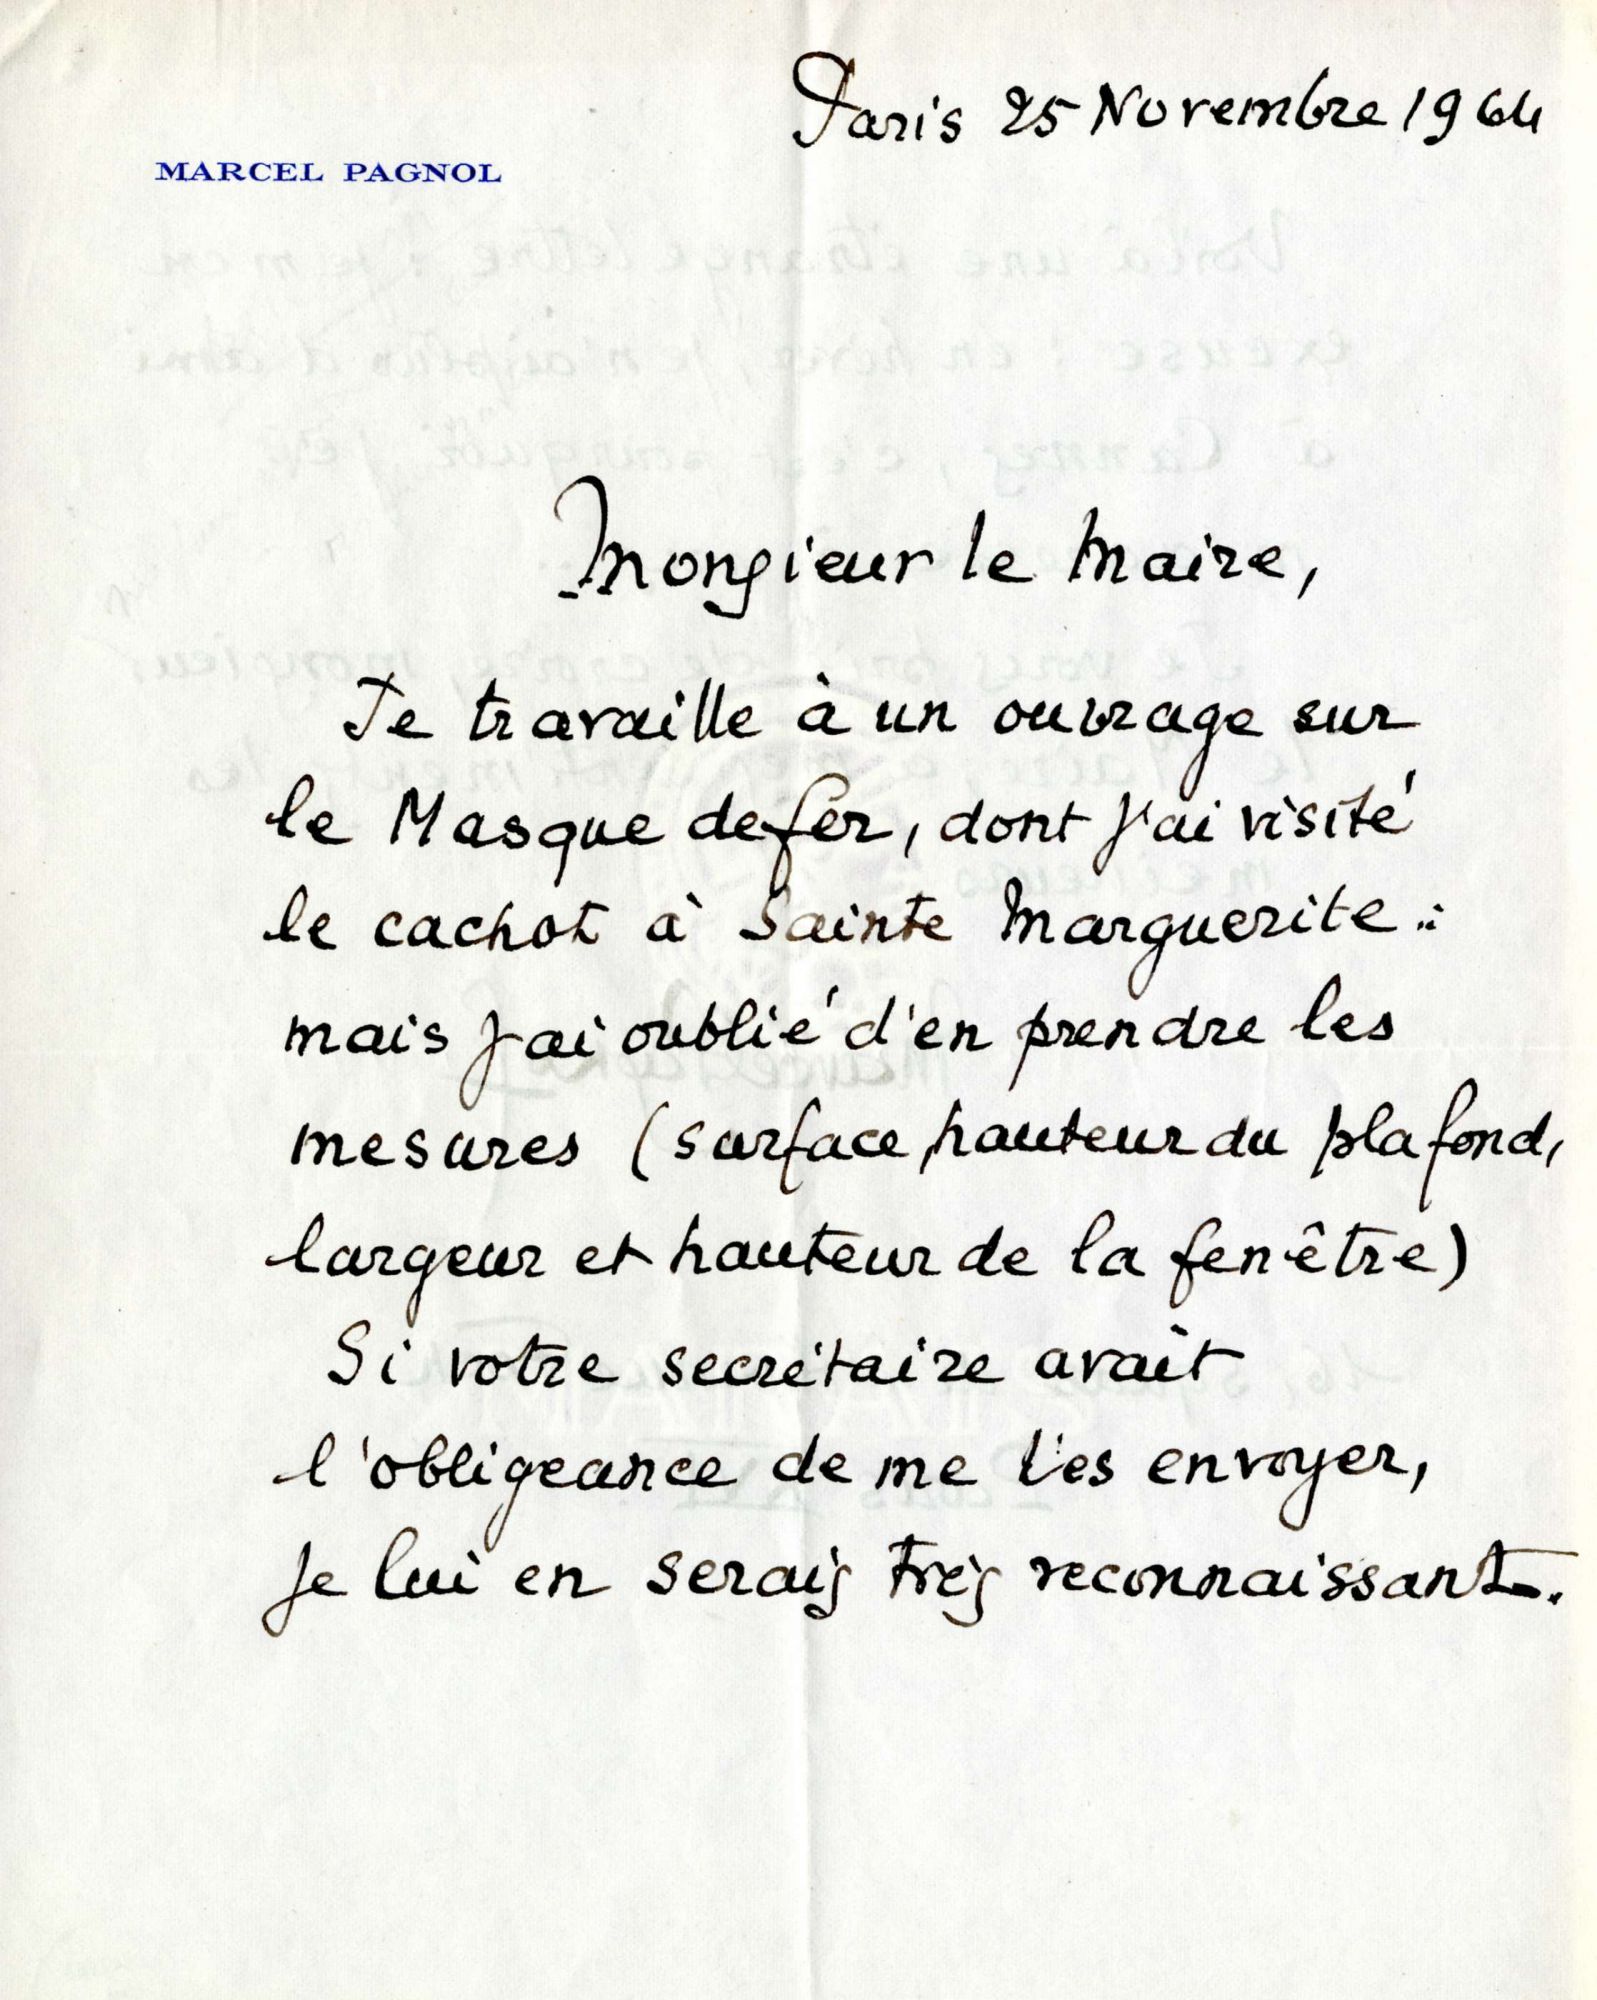 Paris 25 Novembre 1964
MARCEL PAGNOL
Monsieur le Maire,
Je travaille à un ouvrage sur
le Masque de fer, dont j'ai visité
le cachot à Sainte Marguerite :
mais j'ai oublié d'en prendre les
mesures (surface, hauteur du plafond,
largeur et hauteur de la fenêtre)
Si votre secrétaire avait
l'obligeance de me les envoyer,
je lui en serais très reconnaissant.